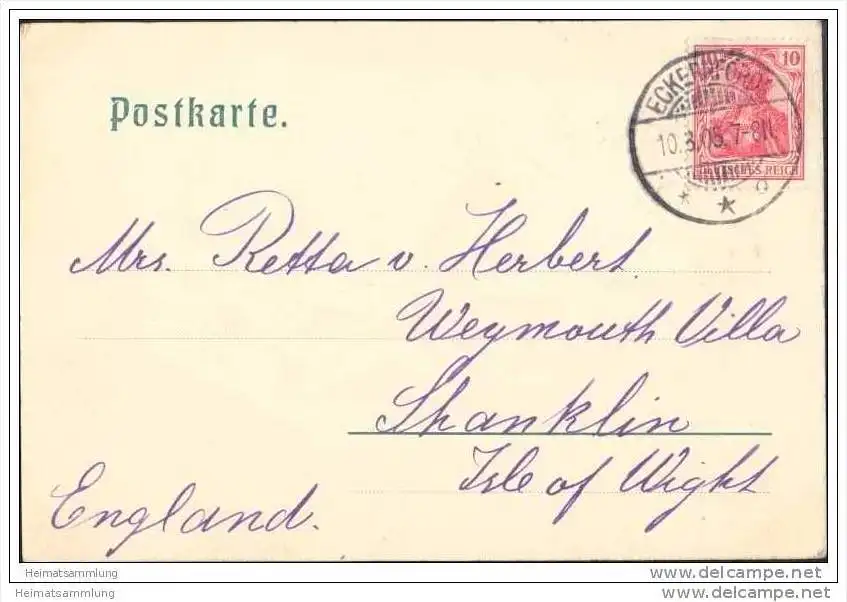 Postkarte.
10
ECKERNFÖRDE
10.3.05.7-8N.
DEUTSCHES REICH
Mrs. Retta v. Herbert
Weymouth Villa
Shanklin
Isle of Wight
England.
Heimatsammlung
Heimatsammlung
www.delcampe.net